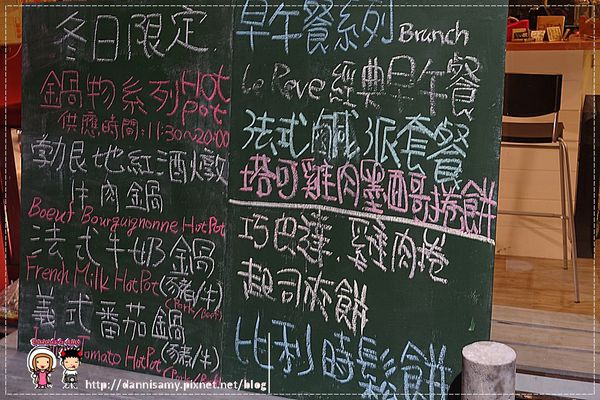 冬日限定
鍋物系列 Hot Pot
供應時間:11:30~20:00
勃艮地紅酒燉
牛肉鍋
Boeuf Bourguignonne HotPot
法式牛奶鍋
French Milk HotPot (豬/牛)
(Pork/Beef)
義式番茄鍋
Tomato HotPot (豬/牛)
(Pork/Beef)
早午餐系列 Brunch
Le Reve 經典早午餐
法式鹹派套餐
塔可雞肉墨西哥捲餅
巧巴達.雞肉捲
起司夾餅
比利時鬆餅
http://dannisamy.pixnet.net/blog